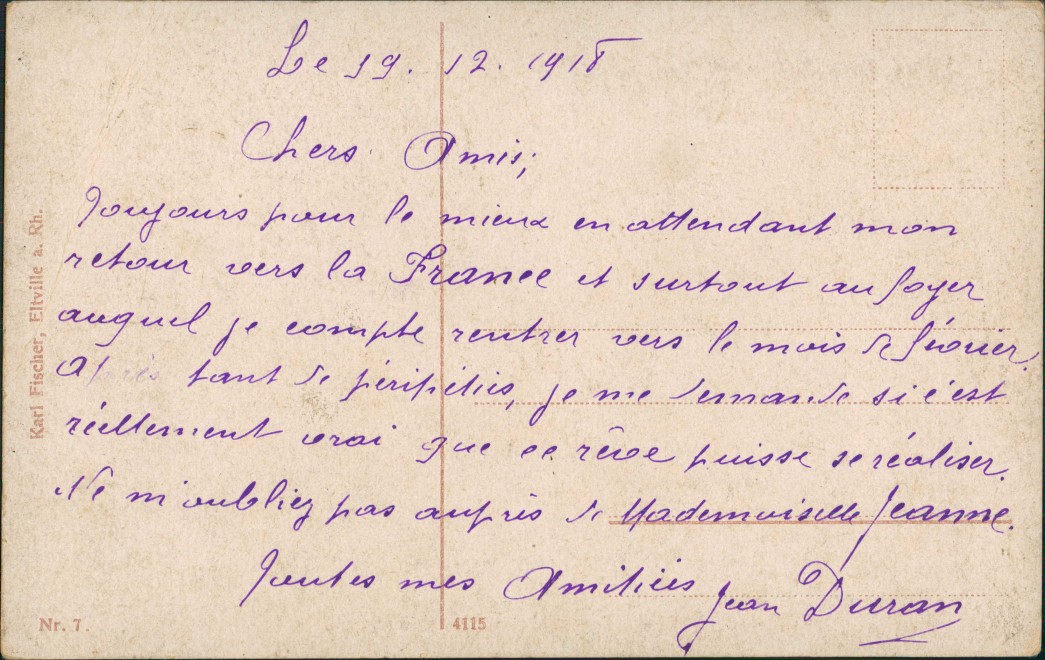 Le 19. 12. 1918
Chers Amis;
Toujours pour le mieux en attendant mon
retour vers la France et surtout au foyer
auquel je compte rentrer vers le mois de février.
Après tant de péripéties, je me demande si c'est
réellement vrai que ce rêve puisse se réaliser.
Ne m'oubliez pas auprès de Mademoiselle Jeanne.
Toutes mes Amitiées
Jean Duran
Karl Fischer, Eltville a. Rh.
Nr. 7.
4115